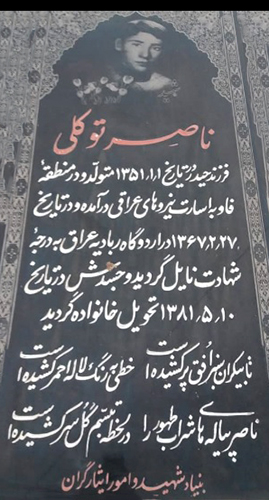 ناصر توکلی
فرزند حیدر در تاریخ ۱۳۵۱،۱،۱ متولد و در منطقهٔ
فاو به اسارت نیروهای عراقی درآمده و در تاریخ
۱۳۶۷،۲،۲۷ در اردوگاه رمادیه عراق به درجهٔ
شهادت نایل گردید و جسدش در تاریخ
۱۳۸۱،۵،۱۰ تحویل خانواده گردید
تا بیکران سر افق پر کشیده است خطی به رنگ لاله احمر کشیده است
ناصر پیاله‌ی ها شراب طهور را در لحظه تبسم گل سر کشیده است
بنیاد شهید و امور ایثارگران